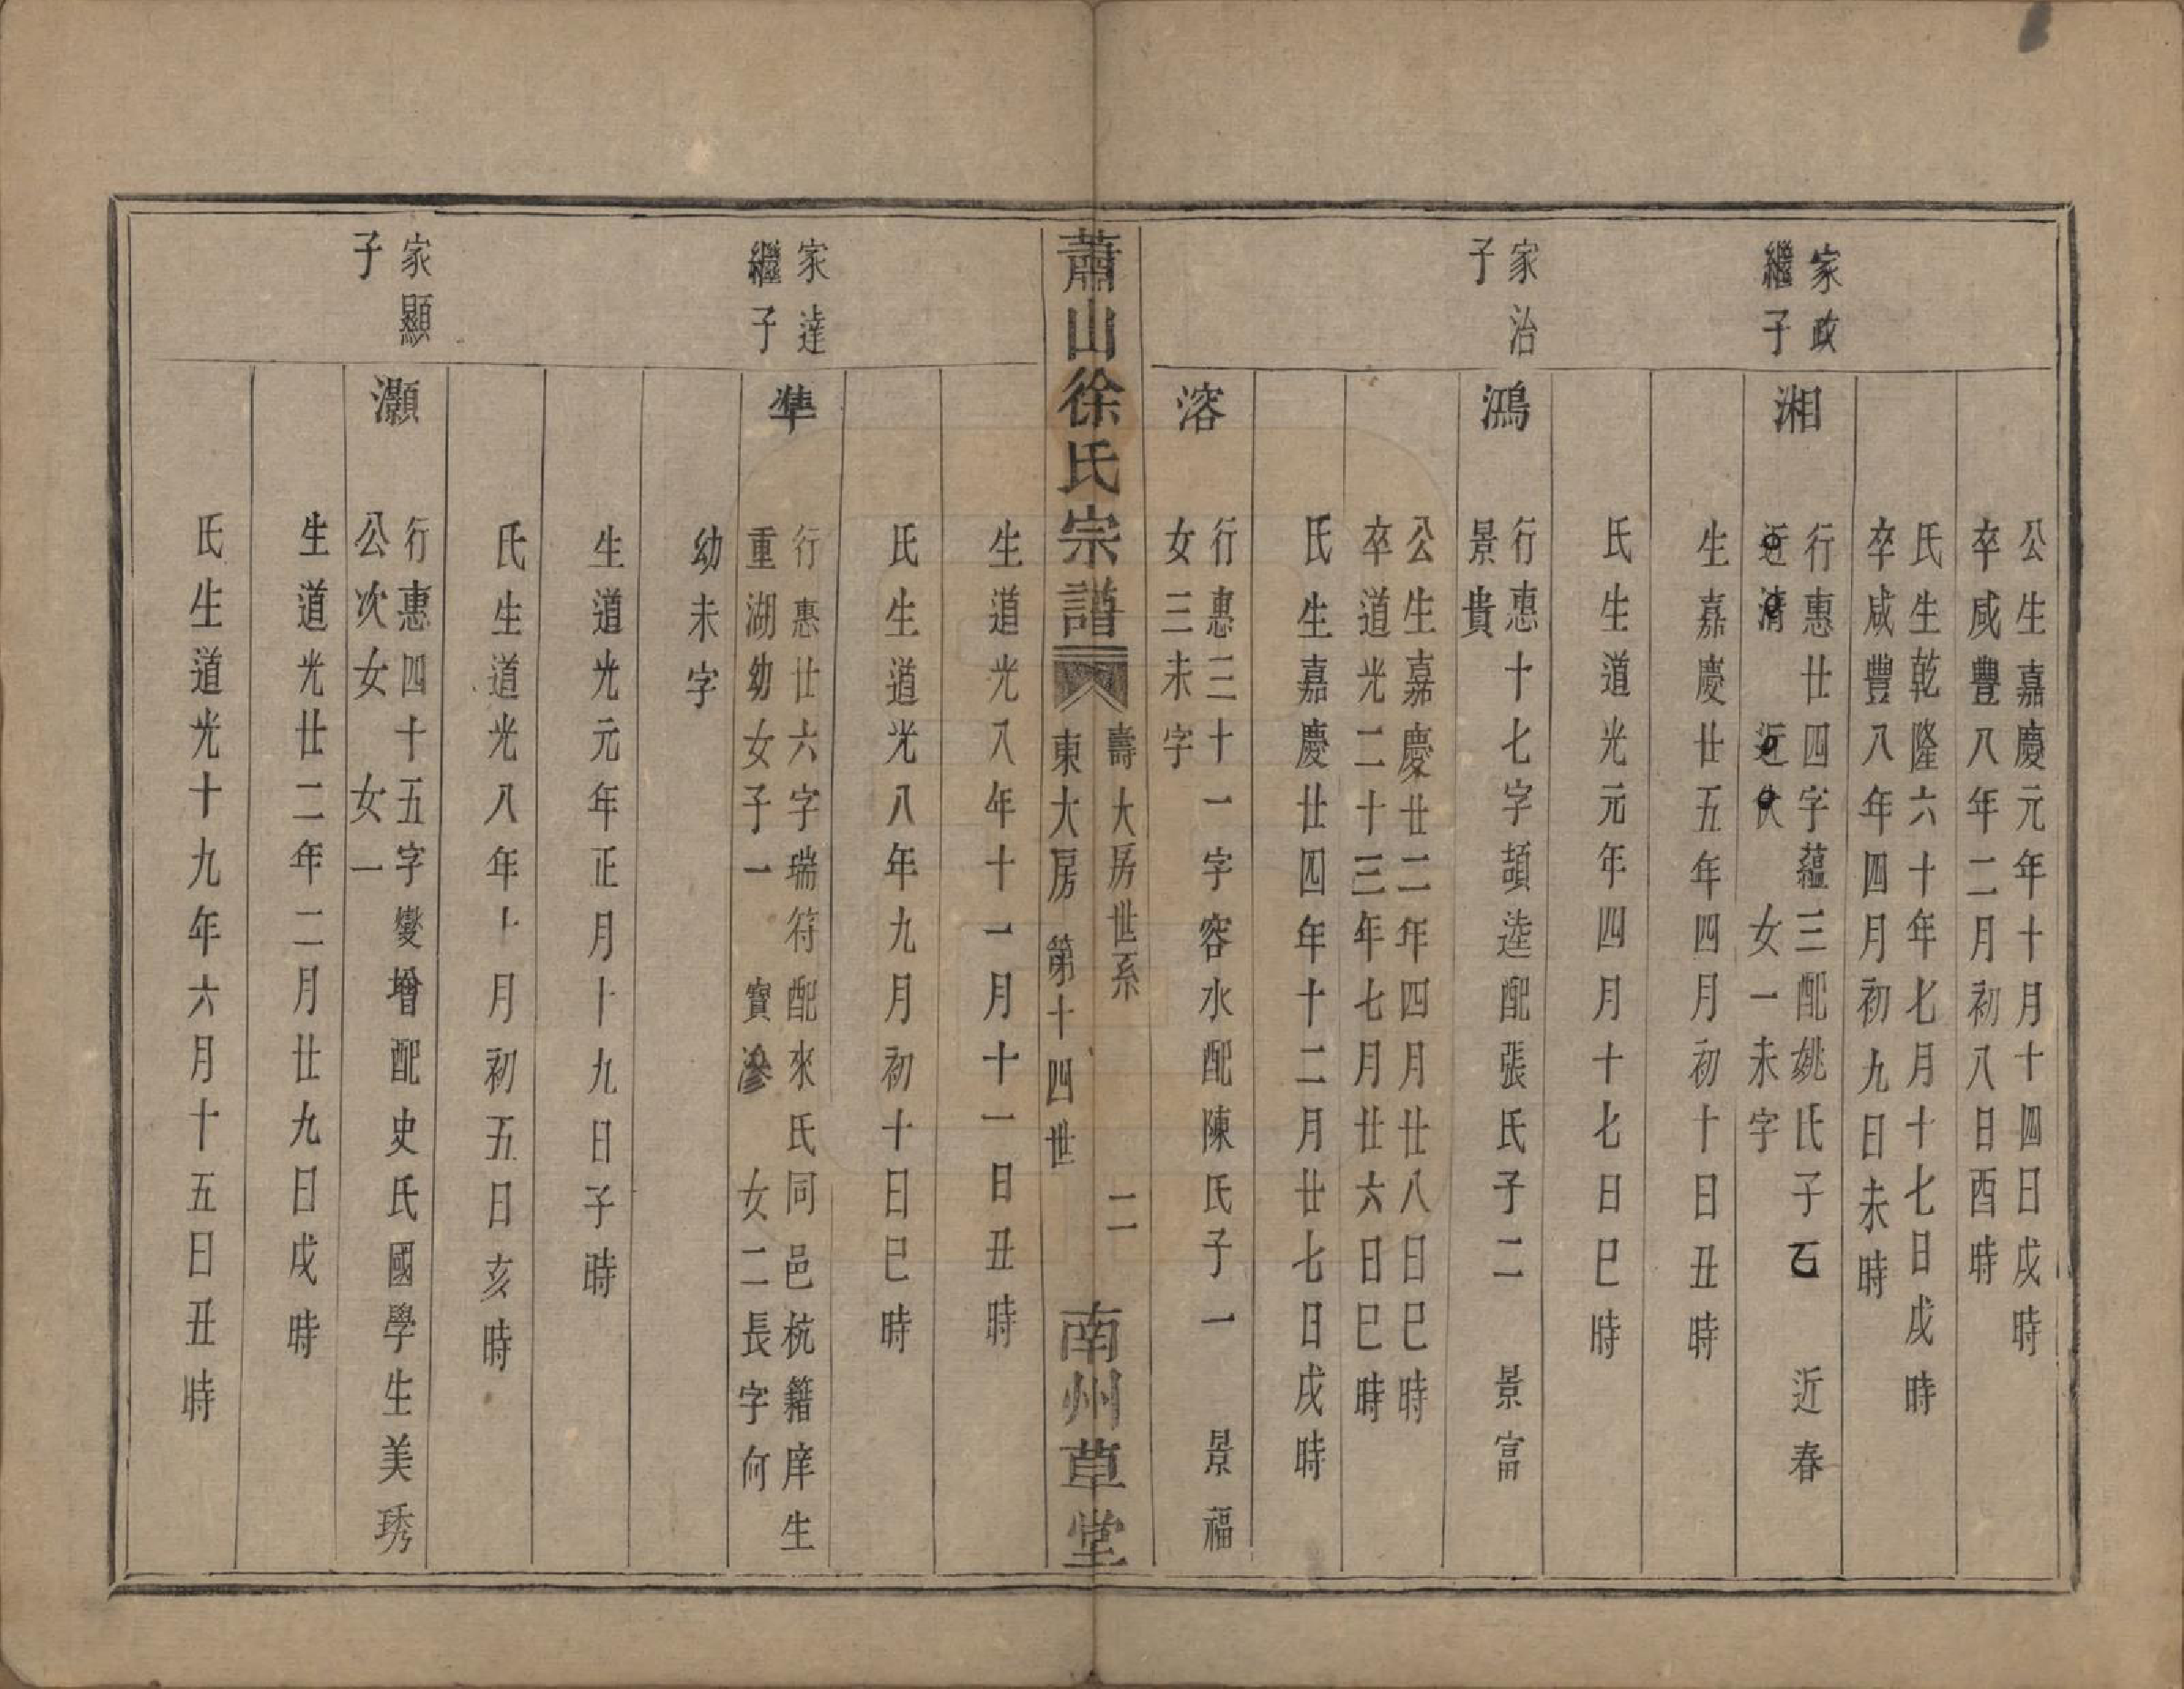 公生嘉慶元年十月十四日戌時
卒咸豐八年二月初八日酉時
氏生乾隆六十年七月十七日戌時
卒咸豐八年四月初九日未時
家政
繼子
湘
行惠廿四字蘊三配姚氏子 近春
近淸 近 女一未字
生嘉慶廿五年四月初十日丑時
氏生道光元年四月十七日巳時
家治
子
鴻
行惠十七字頡逵配張氏子二 景富
景貴
公生嘉慶廿二年四月廿八日巳時
卒道光二十三年七月廿六日巳時
氏生嘉慶廿四年十二月廿七日戌時
溶
行惠三十一字容水配陳氏子一 景福
女三未字
蕭山徐氏宗譜
壽大房世系 二
東大房 第十四世
南州草堂
生道光八年十一月十一日丑時
氏生道光八年九月初十日巳時
家達
繼子
準
行惠廿六字瑞符配來氏同邑杭籍庠生
重湖幼女子一 寶滲 女二長字何
幼未字
生道光元年正月十九日子時
氏生道光八年十月初五日亥時
家顯
子
灝
行惠四十五字燮增配史氏國學生美琇
公次女 女一
生道光廿二年二月廿九日戌時
氏生道光十九年六月十五日丑時